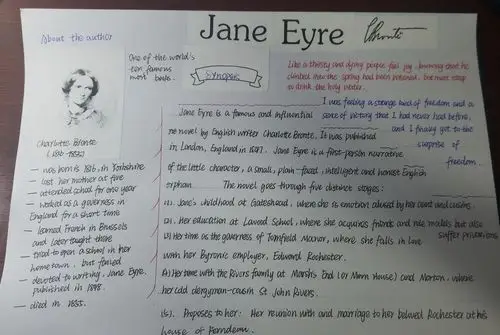 About the author
Jane Eyre
CBrontë
One of the world's
ten famous
most books.
Synopsis
Like a thirsty and dying people feel joy knowing that he
climbed near the spring had been poisoned, but must stoop
to drink the holy water.
I was feeling a strange kind of freedom and a
sense of victory that I had never had before,
and I finally got to the
surprise of
freedom.
Charlotte Bronte
(1816-1855)
— was born in 1816, in Yorkshire
— lost her mother at five
— attended school for one year
— worked as a governess in
England for a short time
— learned French in Brussels
and later taught there
— tried to open a school in her
hometown, but failed
— devoted to writing, Jane Eyre,
published in 1848.
— died in 1855.
Jane Eyre is a famous and influential
novel by English writer Charlotte Bronte. It was published
in London, England in 1847. Jane Eyre is a first-person narrative
of the little character, a small, plain-faced, intelligent and honest English
orphan. The novel goes through five distinct stages:
(1). Jane's childhood at Gateshead, where she is emotion abused by her aunt and cousins.
(2). Her education at Lowood School, where she acquires friends and role models but also
suffer privations
(3) Her time as the governess of Thornfield Manor, where she falls in love
with her Byronic employer, Edward Rochester.
(4) Her time with the Rivers family at Marsh's End (or Moor House) and Morton, where
her cold clergyman-cousin St John Rivers.
(5). Proposes to her: Her reunion with and marriage to her beloved Rochester at his
house of Ferndean.